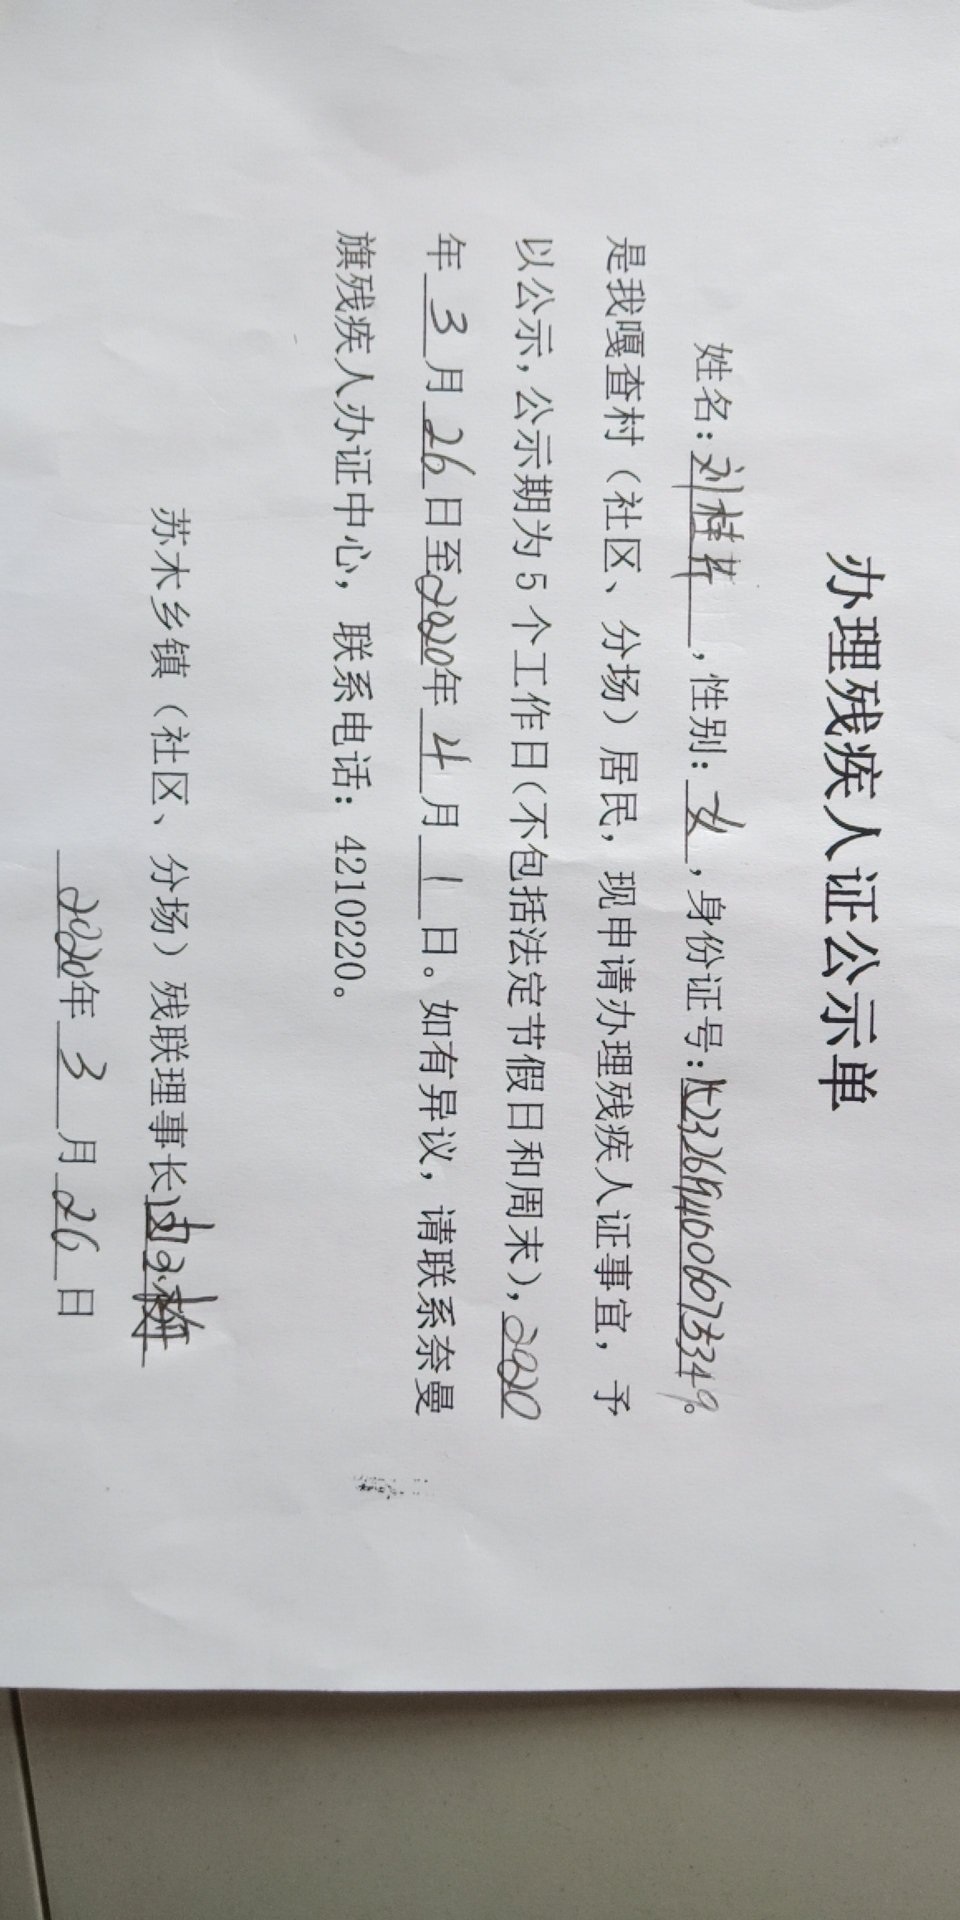 办理残疾人证公示单
姓名：刘桂芹，性别：女，身份证号：
是我嘎查村（社区、分场）居民，现申请办理残疾人证事宜，予
以公示，公示期为5个工作日（不包括法定节假日和周末），2020
年3月26日至2020年4月1日。如有异议，请联系奈曼
旗残疾人办证中心，联系电话：4210220。
苏木乡镇（社区、分场）残联理事长
2020年3月26日